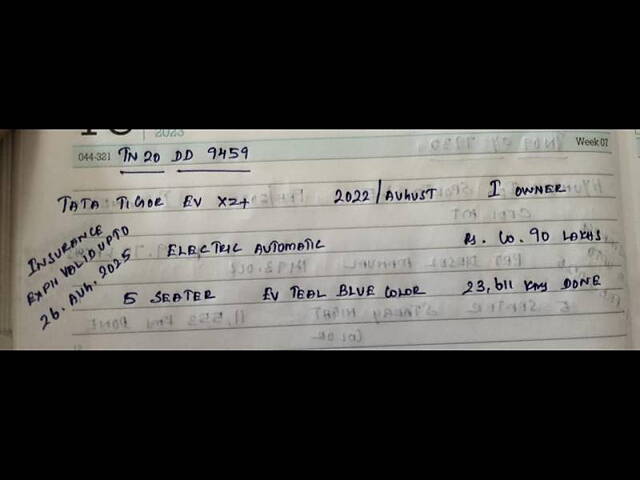 2023
044-321 Week 07
TN 20 DD 9459
TATA TIGOR EV XZ+ 2022/AUGUST I OWNER
INSURANCE
EXPII VALID UPTO
26. AUG. 2025
ELECTRIC AUTOMATIC Rs. 10.90 LAKHS
5 SEATER EV TEAL BLUE COLOR 23,611 Kms DONE